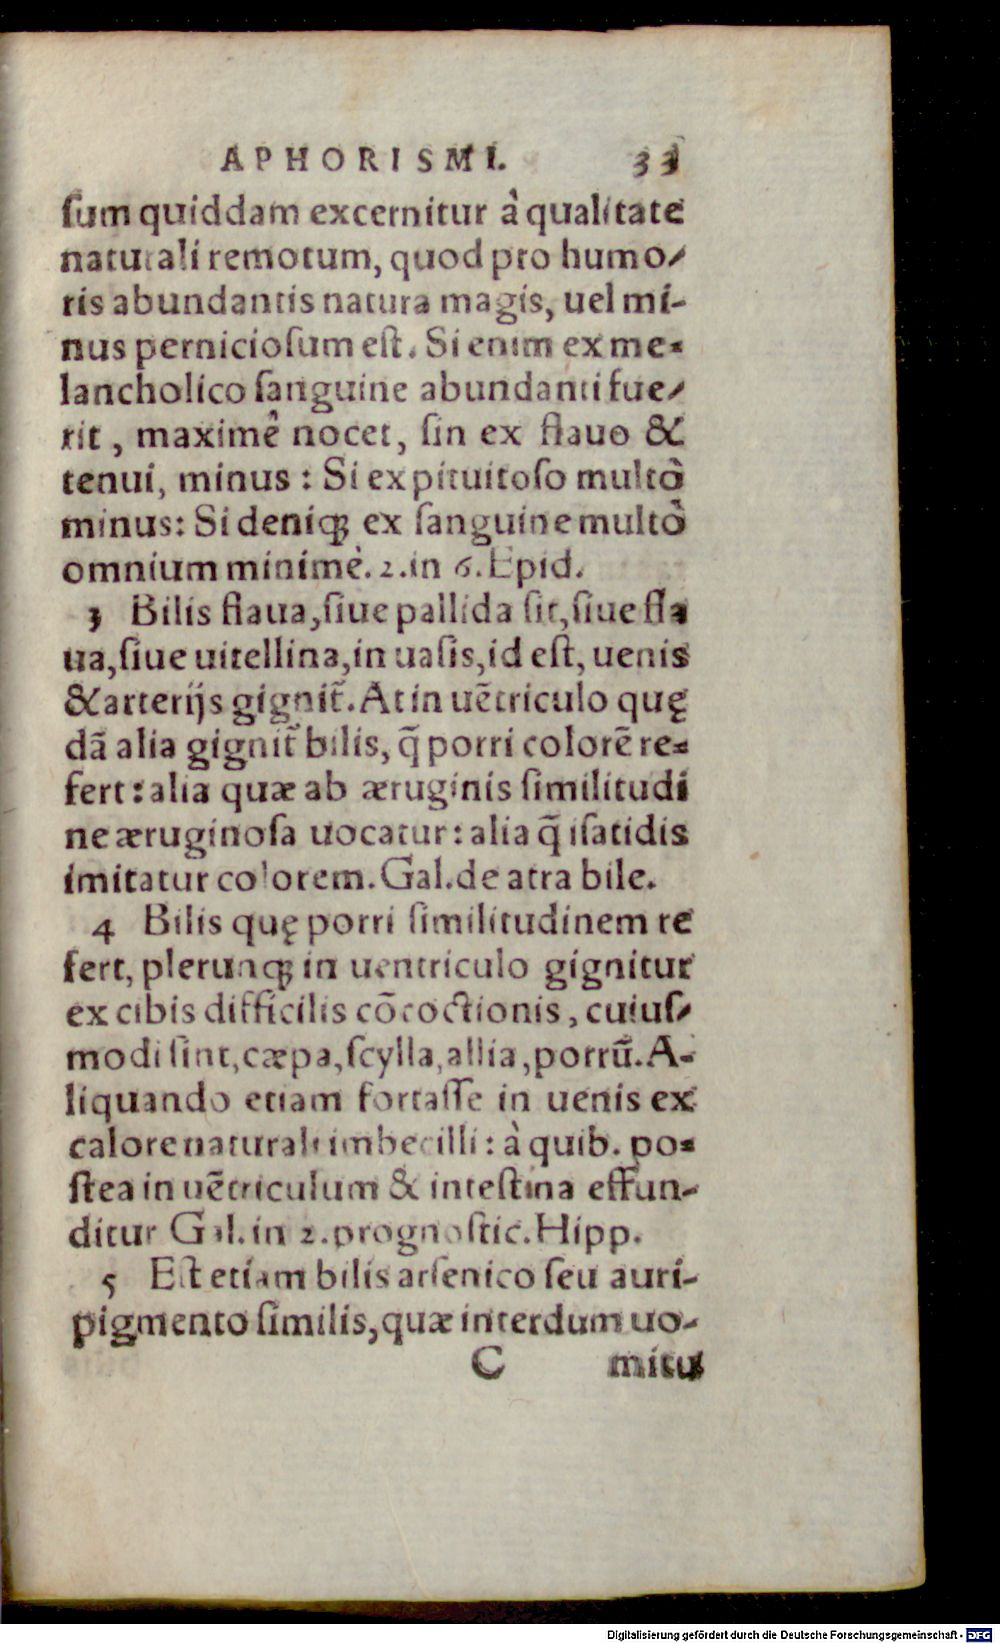 APHORISMI. 33
ſum quiddam excernitur à qualitate
naturali remotum, quod pro humo-
ris abundantis natura magis, uel mi-
nus pernicioſum eſt. Si enim ex me-
lancholico ſanguine abundanti fue-
rit, maximê nocet, ſin ex flauo &
tenui, minus: Si ex pituitoſo multò
minus: Si deniqꝫ ex ſanguine multò
omnium minimè. 2. in 6. Epid.
3 Bilis flaua, ſiue pallida ſit, ſiue fla
ua, ſiue uitellina, in uaſis, id eſt, uenis
& arterijs gignit̃. At in uẽtriculo quę
dã alia gignit̃ bilis, q̃ porri colorẽ re-
fert: alia quæ ab æruginis ſimilitudi
ne æruginoſa uocatur: alia q̃ iſatidis
imitatur colorem. Gal. de atra bile.
4 Bilis quę porri ſimilitudinem re
fert, plerunqꝫ in uentriculo gignitur
ex cibis difficilis cõcoctionis, cuiuſ-
modi ſint, cæpa, ſcylla, allia, porrũ. A-
liquando etiam fortaſſe in uenis ex
calore naturali imbecilli: à quib. po-
ſtea in uẽtriculum & inteſtina effun-
ditur Gal. in 2. prognoſtic. Hipp.
5 Eſt etiam bilis arſenico ſeu auri-
pigmento ſimilis, quæ interdum uo-
C mitu
Digitalisierung gefördert durch die Deutsche Forschungsgemeinschaft - DFG